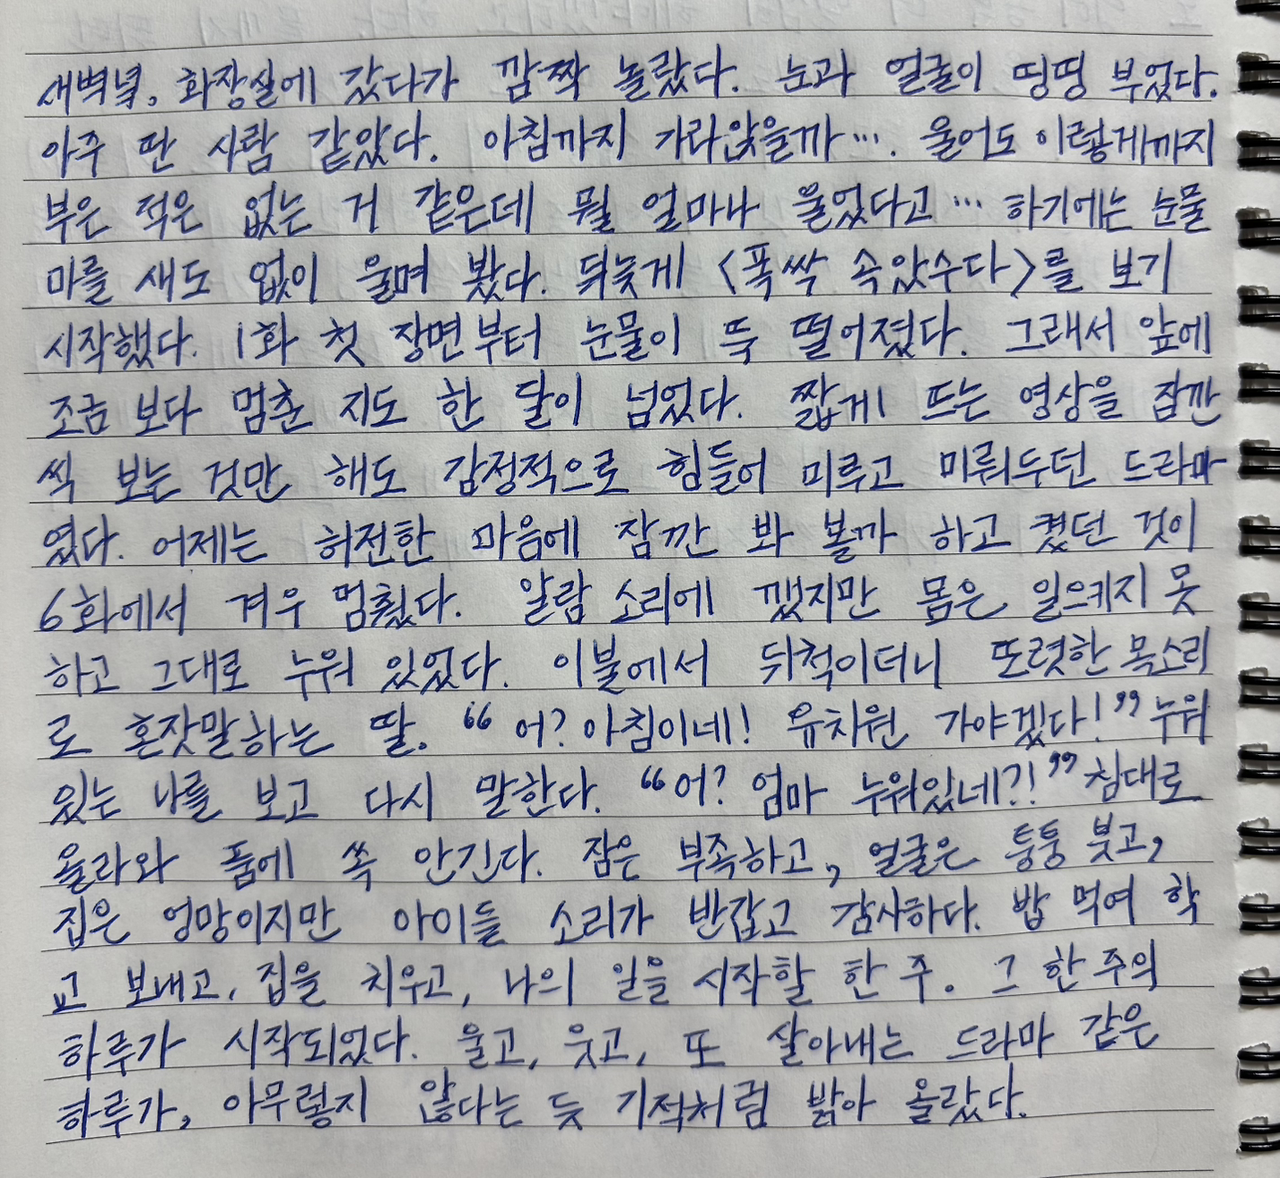 새벽녘, 화장실에 갔다가 깜짝 놀랐다. 눈과 얼굴이 띵띵 부었다.
아주 딴 사람 같았다. 아침까지 가라앉을까···. 울어도 이렇게까지
부은 적은 없는 거 같은데 뭘 얼마나 울었다고··· 하기에는 눈물
마를 새도 없이 울며 봤다. 뒤늦게 <폭싹 속았수다>를 보기
시작했다. 1화 첫 장면부터 눈물이 뚝 떨어졌다. 그래서 앞에
조금 보다 멈춘 지도 한 달이 넘었다. 짧게 뜨는 영상을 잠깐
씩 보는 것만 해도 감정적으로 힘들어 미루고 미뤄두던 드라마
였다. 어제는 허전한 마음에 잠깐 봐 볼까 하고 켰던 것이
6화에서 겨우 멈췄다. 알람 소리에 깼지만 몸은 일으키지 못
하고 그대로 누워 있었다. 이불에서 뒤척이더니 또렷한 목소리
로 혼잣말하는 딸. “어? 아침이네! 유치원 가야겠다!” 누워
있는 나를 보고 다시 말한다. “어? 엄마 누워있네?!” 침대로
올라와 품에 쏙 안긴다. 잠은 부족하고, 얼굴은 퉁퉁 붓고,
집은 엉망이지만 아이들 소리가 반갑고 감사하다. 밥 먹여 학
교 보내고, 집을 치우고, 나의 일을 시작할 한 주. 그 한 주의
하루가 시작되었다. 울고, 웃고, 또 살아내는 드라마 같은
하루가, 아무렇지 않다는 듯 기적처럼 밝아 올랐다.